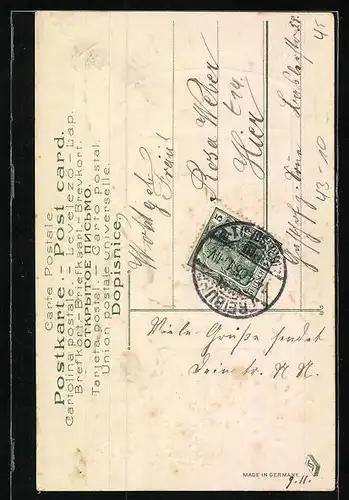 Carte Postale.
Postkarte - Post card.
Cartolina postale. - Levelező-Lap.
Brefkort.-Briefkaart.-Brevkort.
ОТКРЫТОЕ ПИСЬМО.
Tarjeta postal. - Carto postal.
Union postale universelle.
Dopisnice.
Wohlgeb.
Fräul
Rosa Weber
Hier
43-10
45
5
Viele Grüße sendet
Dein tr. N. N.
9.11.
MADE IN GERMANY